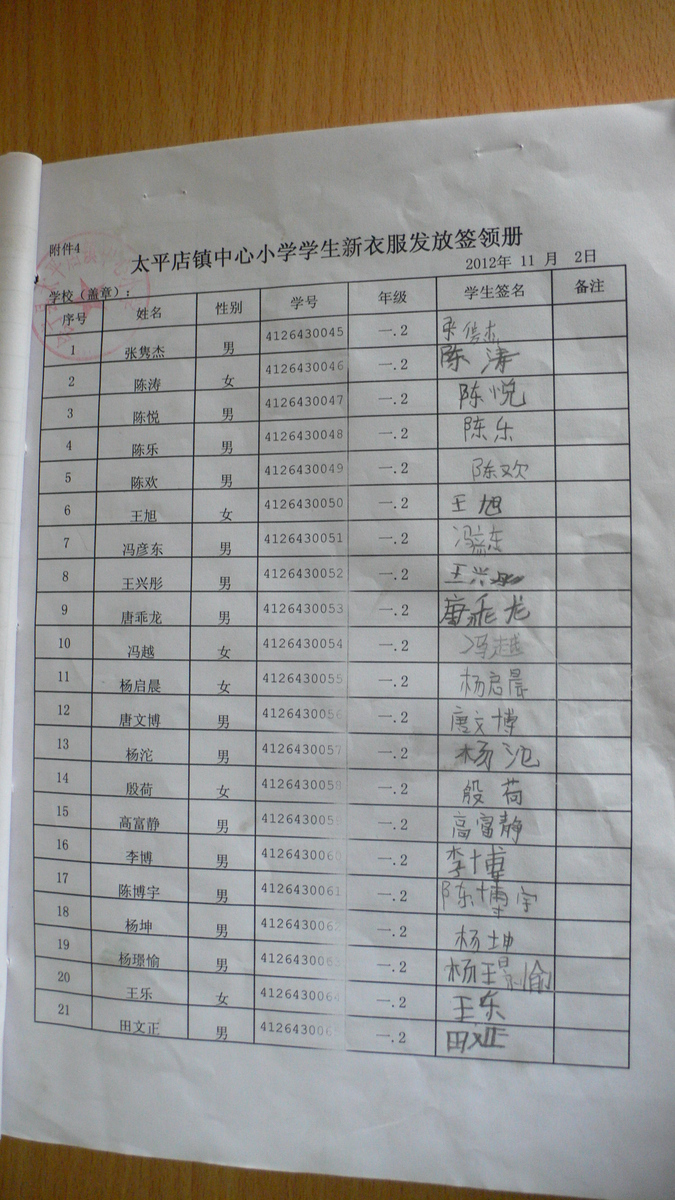 附件4
太平店镇中心小学学生新衣服发放签领册
2012年 11 月 2日
学校（盖章）：
序号 姓名 性别 学号 年级 学生签名 备注
1 张隽杰 男 4126430045 一.2
2 陈涛 女 4126430046 一.2 陈涛
3 陈悦 男 4126430047 一.2 陈悦
4 陈乐 男 4126430048 一.2 陈乐
5 陈欢 男 4126430049 一.2 陈欢
6 王旭 女 4126430050 一.2 王旭
7 冯彦东 男 4126430051 一.2 冯彦东
8 王兴彤 男 4126430052 一.2 王兴
9 唐乖龙 男 4126430053 一.2 唐乖龙
10 冯越 女 4126430054 一.2 冯越
11 杨启晨 女 4126430055 一.2 杨启晨
12 唐文博 男 4126430056 一.2 唐文博
13 杨沱 男 4126430057 一.2 杨沱
14 殷荷 女 4126430058 一.2 殷荷
15 高富静 男 4126430059 一.2 高富静
16 李博 男 4126430060 一.2 李博
17 陈博宇 男 4126430061 一.2 陈博宇
18 杨坤 男 4126430062 一.2 杨坤
19 杨璟愉 男 4126430063 一.2 杨璟愉
20 王乐 女 4126430064 一.2 王乐
21 田文正 男 一.2 田文正